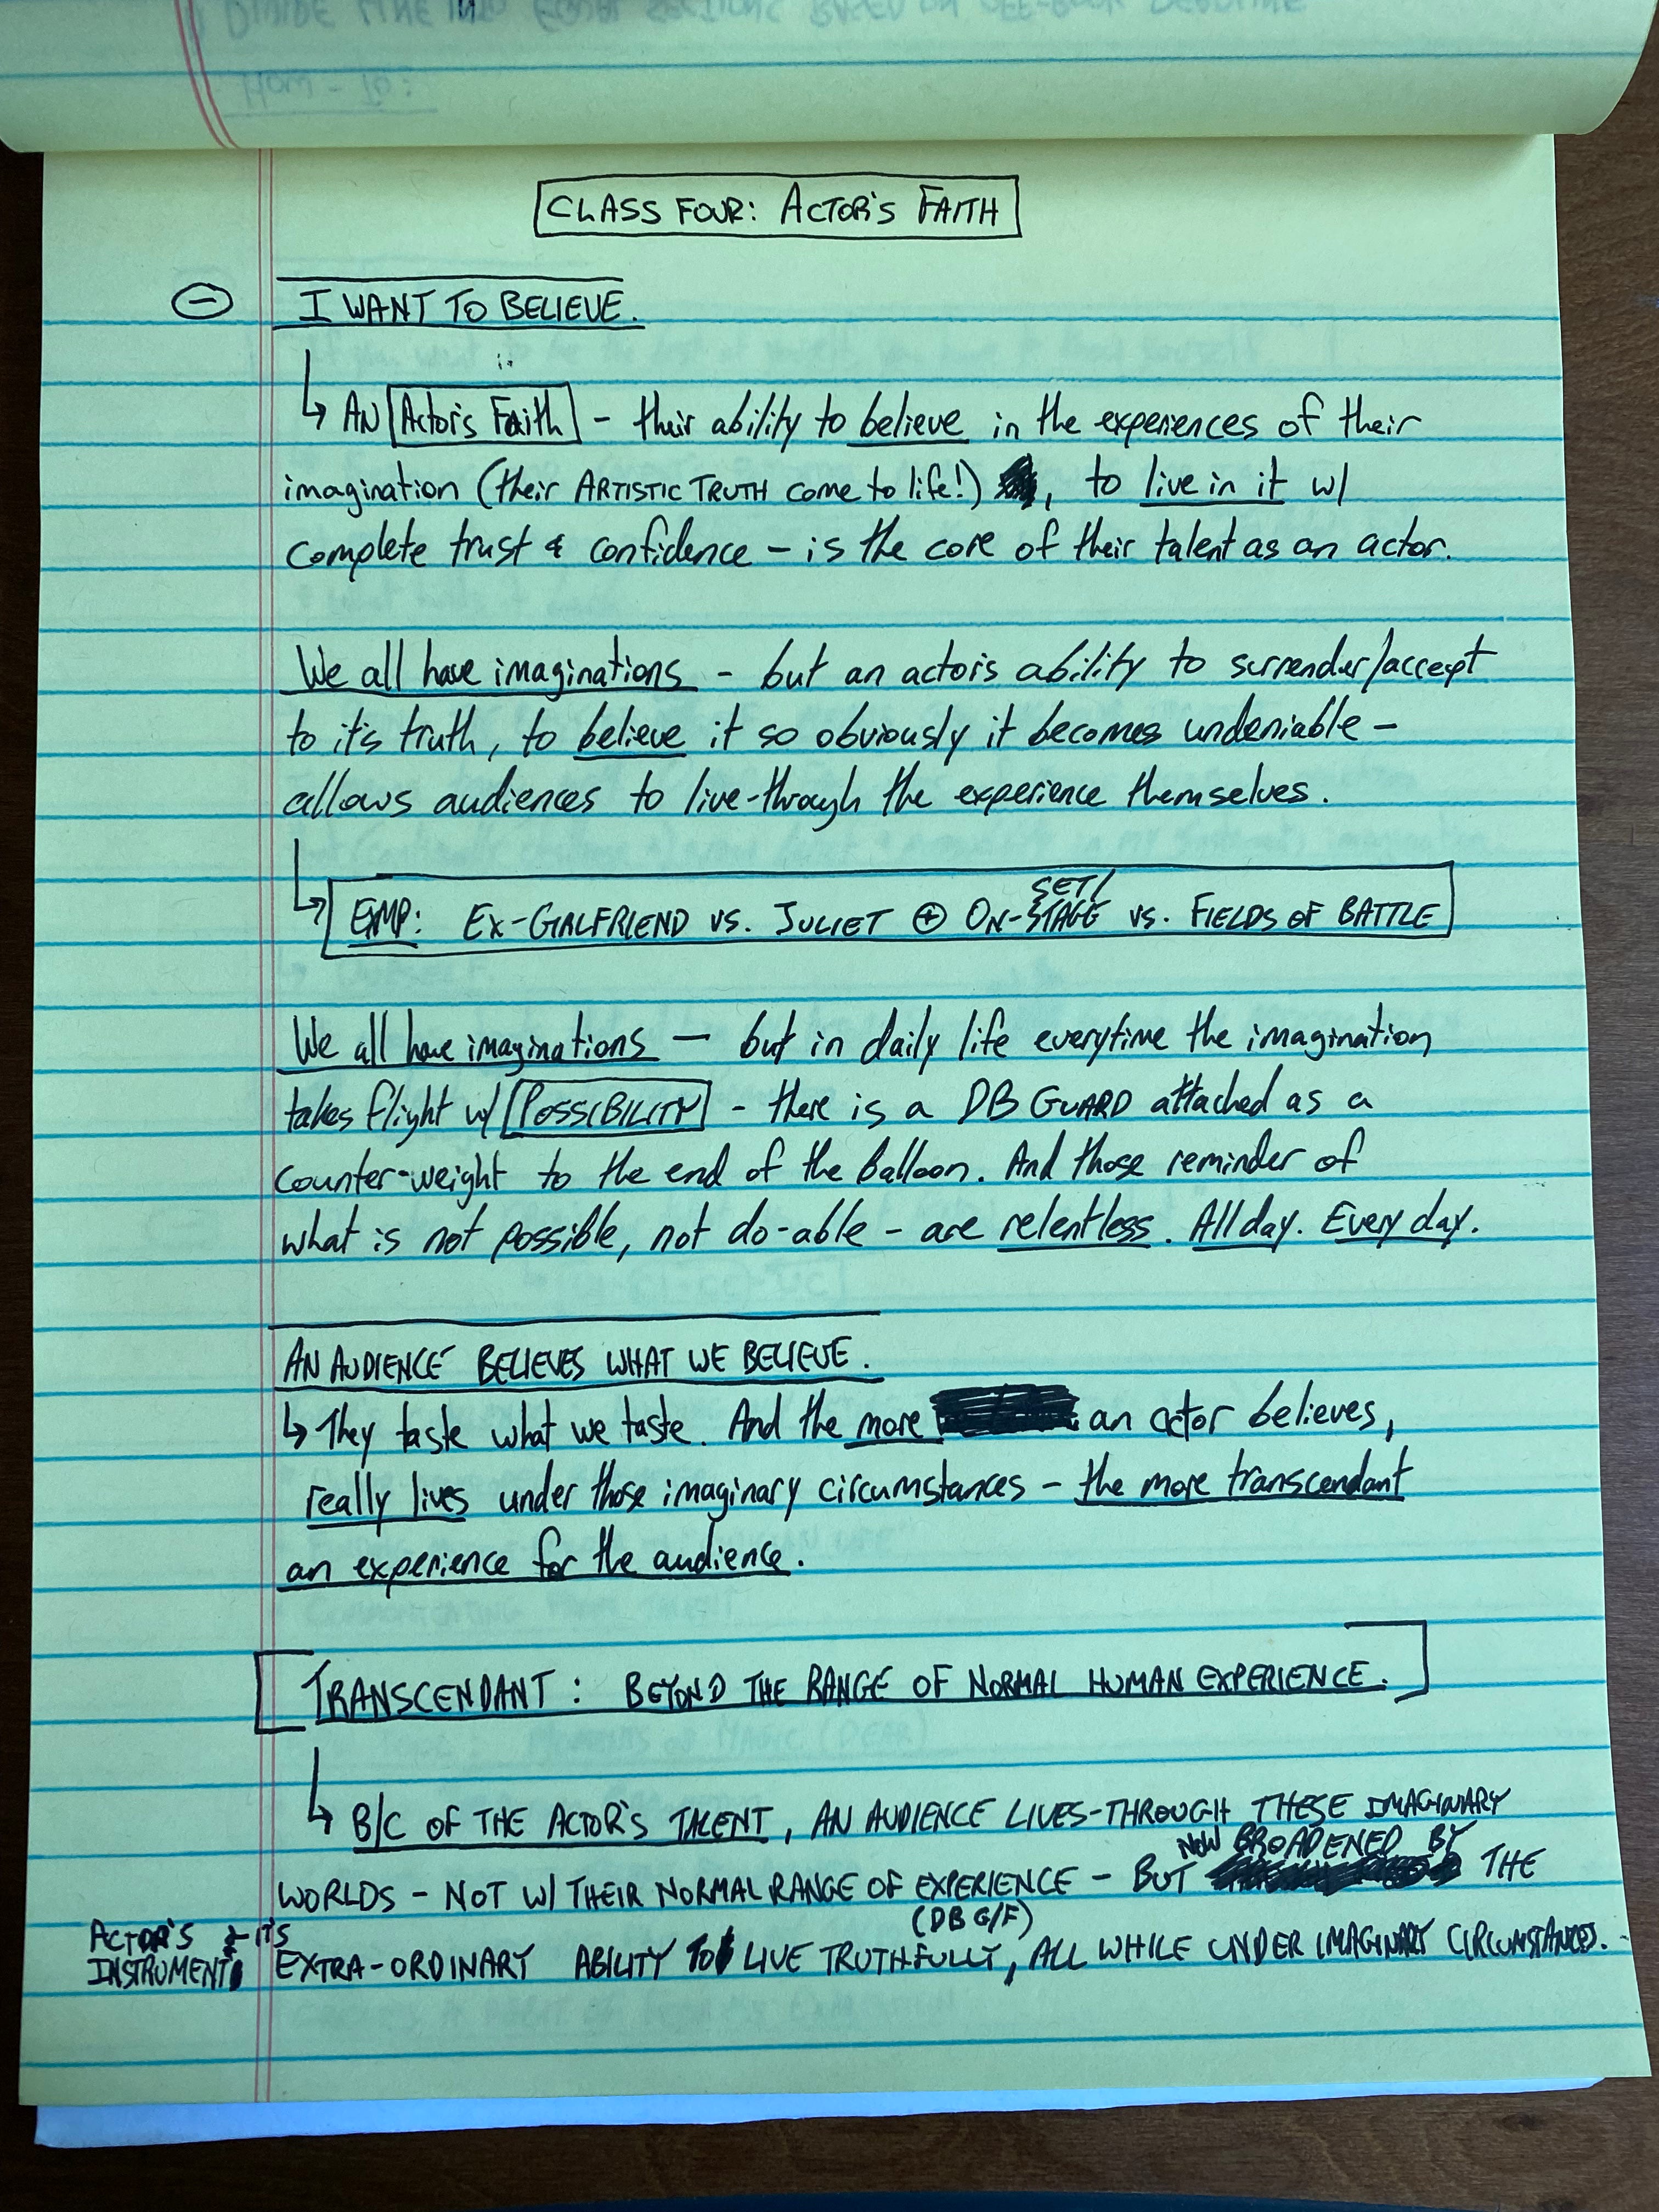 CLASS FOUR: ACTOR'S FAITH
I WANT TO BELIEVE.
↳ AN Actor's Faith - their ability to believe in the experiences of their
imagination (their ARTISTIC TRUTH come to life!) , to live in it w/
complete trust & confidence - is the core of their talent as an actor.
We all have imaginations - but an actor's ability to surrender/accept
to it's truth, to believe it so obviously it becomes undeniable -
allows audiences to live-through the experience themselves.
SET/
↳ EMP: EX-GIRLFRIEND VS. JULIET ⊕ ON-STAGE VS. FIELDS OF BATTLE
We all have imaginations — but in daily life everytime the imagination
takes flight w/ POSSIBILITY - there is a DB GUARD attached as a
counter-weight to the end of the balloon. And those reminder of
what is not possible, not do-able - are relentless. All day. Every day.
AN AUDIENCE BELIEVES WHAT WE BELIEVE.
↳ They taste what we taste. And the more an actor believes,
really lives under those imaginary circumstances - the more transcendant
an experience for the audience.
TRANSCENDANT: BEYOND THE RANGE OF NORMAL HUMAN EXPERIENCE.
↳ B/C OF THE ACTOR'S TALENT, AN AUDIENCE LIVES-THROUGH THESE IMAGINARY
NOW BROADENED BY
WORLDS - NOT W/ THEIR NORMAL RANGE OF EXPERIENCE - BUT THE
(DB G/F)
ACTOR'S & IT'S
INSTRUMENT EXTRA-ORDINARY ABILITY TO LIVE TRUTHFULLY, ALL WHILE UNDER IMAGINARY CIRCUMSTANCES.